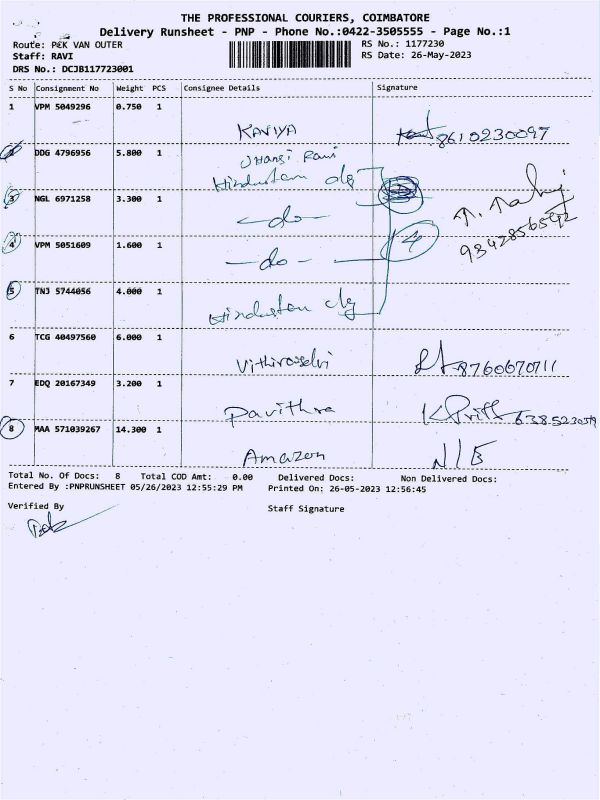 THE PROFESSIONAL COURIERS, COIMBATORE
Delivery Runsheet - PNP - Phone No.:0422-3505555 - Page No.:1
Route: PEK VAN OUTER RS No.: 1177230
Staff: RAVI RS Date: 26-May-2023
DRS No.: DCJB117723001
S No Consignment No Weight PCS Consignee Details Signature
1 VPM 5049296 0.750 1
KAVIYA 8610230097
2 DDG 4796956 5.800 1
Rani
Hindustan clg
3 NGL 6971258 3.300 1
-do-
4 VPM 5051609 1.600 1
4
-do-
5 TNJ 5744056 4.000 1
Hindustan clg
6 TCG 40497560 6.000 1
8760670711
7 EDQ 20167349 3.200 1
Pavithra
8 MAA 571039267 14.300 1
Amazon N/E
Total No. Of Docs: 8 Total COD Amt: 0.00 Delivered Docs: Non Delivered Docs:
Entered By :PNPRUNSHEET 05/26/2023 12:55:29 PM Printed On: 26-05-2023 12:56:45
Verified By Staff Signature